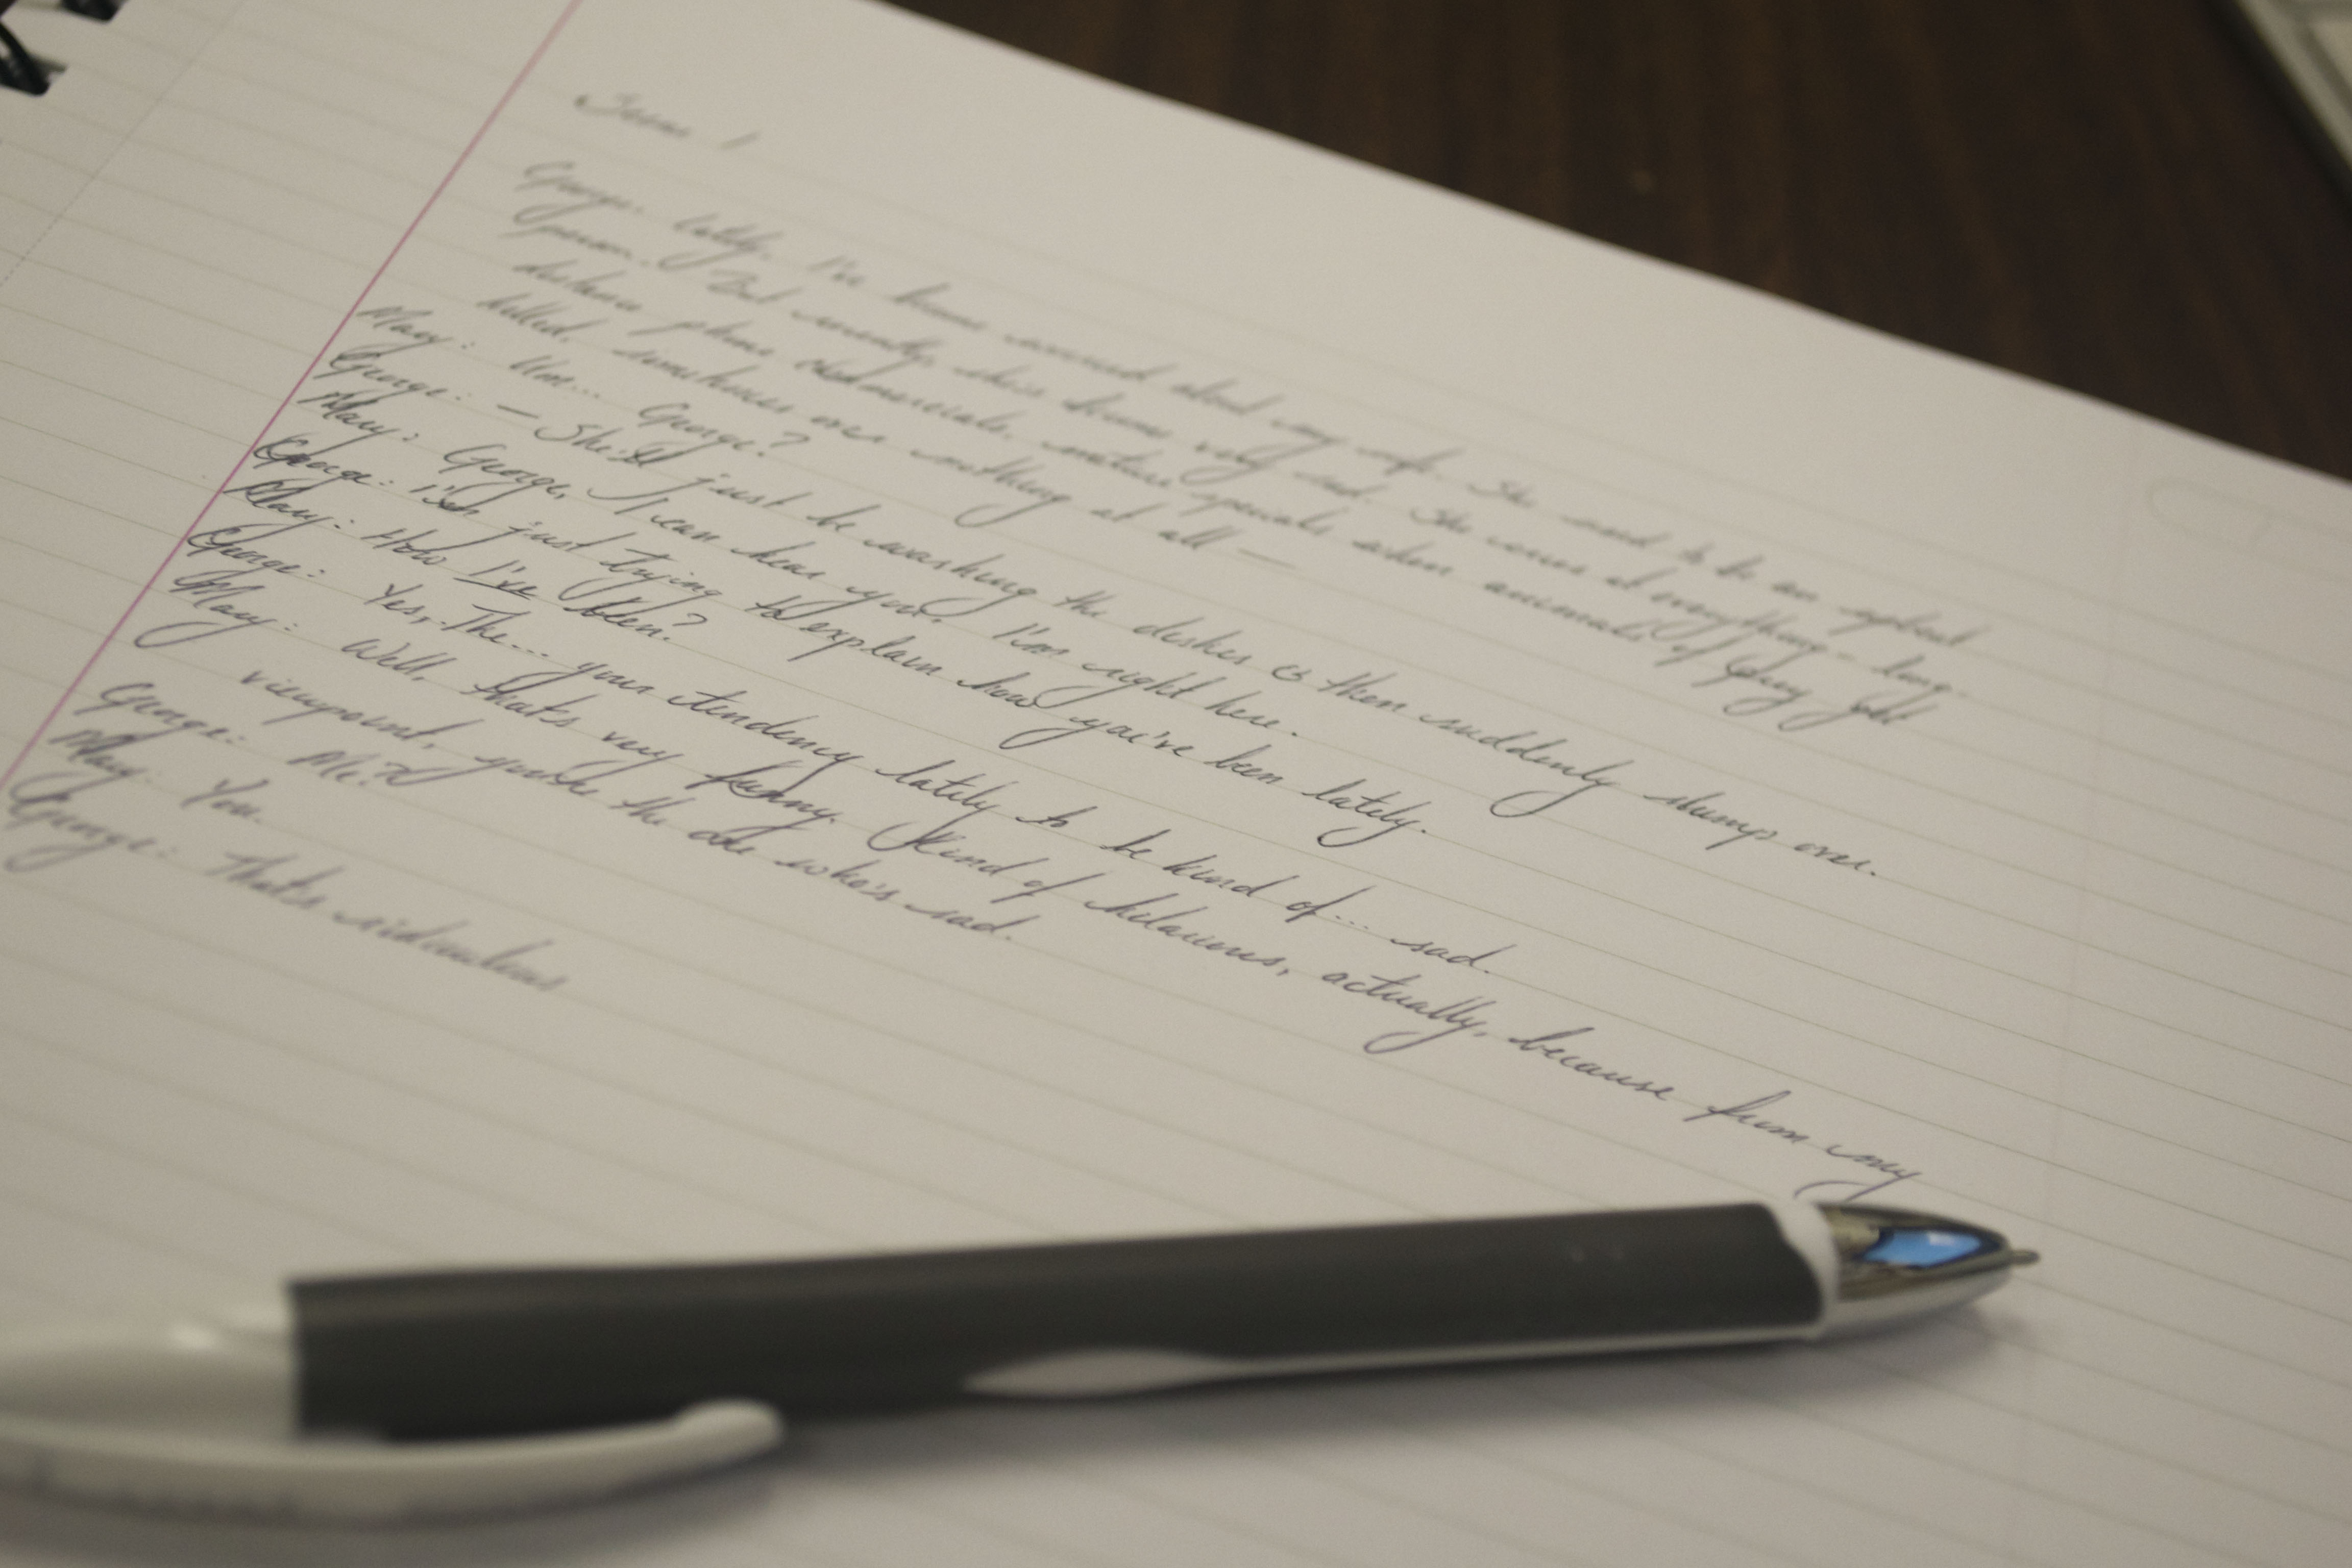 Scene 1
George: Lately, I've been worried about my wife. She used to be an upbeat
person. But recently, she's become very sad. She cries at everything - long
distance phone commercials, nature specials when animals of prey get
killed, sometimes over nothing at all —
May: Um... George?
George: — She'll just be washing the dishes & then suddenly slump over.
May: George, I can hear you. I'm right here.
George: I'm just trying to explain how you've been lately.
May: How I've been?
George: Yes, The... your tendency lately to be kind of... sad.
May: Well, that's very funny. Kind of hilarious, actually, because from my
viewpoint, you're the one who's sad.
George: Me?
May: You.
George: That's ridiculous